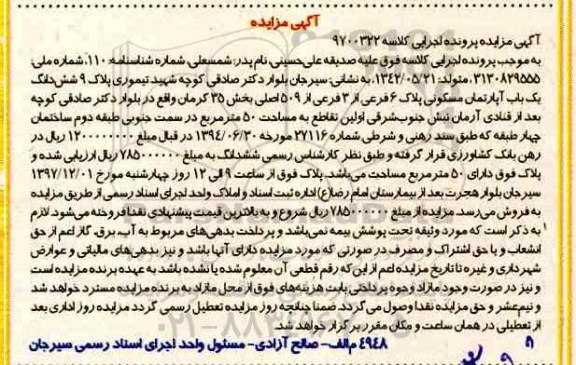 آگهی مزایده
آگهی مزایده پرونده اجرایی کلاسه ۹۷۰۰۳۲۲
به موجب پرونده اجرایی کلاسه فوق علیه صدیقه علی‌حسینی، نام پدر: شمسعلی، شماره شناسنامه: ۱۱۰، شماره ملی:
۳۱۳۰۸۲۹۵۵۵، متولد: ۱۳۴۲/۰۵/۲۱، به نشانی: سیرجان بلوار دکتر صادقی کوچه شهید تیموری پلاک ۹ شش‌دانگ
یک باب آپارتمان مسکونی پلاک ۶ فرعی از ۳ فرعی از ۵۰۹ اصلی بخش ۳۵ کرمان واقع در بلوار دکتر صادقی کوچه
بعد از قنادی آرمان نبش جنوب‌شرقی اولین تقاطع به مساحت ۵۰ مترمربع در سمت جنوبی طبقه دوم ساختمان
چهار طبقه که طبق سند رهنی و شرطی شماره ۲۷۱۱۶ مورخه ۱۳۹۴/۰۶/۳۰ در قبال مبلغ ۱۲۰۰۰۰۰۰۰۰ ریال در
رهن بانک کشاورزی قرار گرفته و طبق نظر کارشناس رسمی ششدانگ به مبلغ ۷۸۵۰۰۰۰۰۰ ریال ارزیابی شده و
پلاک فوق دارای ۵۰ مترمربع مساحت می‌باشد. پلاک فوق از ساعت ۹ الی ۱۲ روز چهارشنبه مورخ ۱۳۹۷/۱۲/۰۱
سیرجان بلوار هجرت بعد از بیمارستان امام رضا(ع) اداره ثبت اسناد و املاک واحد اجرای اسناد رسمی از طریق مزایده
به فروش می‌رسد. مزایده از مبلغ ۷۸۵۰۰۰۰۰۰ ریال شروع و به بالاترین قیمت پیشنهادی نقدا فروخته می‌شود. لازم
به ذکر است که مورد وثیقه تحت پوشش بیمه نمی‌باشد و پرداخت بدهی‌های مربوط به آب، برق، گاز اعم از حق
انشعاب و یا حق اشتراک و مصرف در صورتی که مورد مزایده دارای آنها باشد و نیز بدهی‌های مالیاتی و عوارض
شهرداری و غیره تا تاریخ مزایده اعم از این که رقم قطعی آن معلوم شده یا نشده باشد به عهده برنده مزایده است
و نیز در صورت وجود مازاد وجوه پرداختی بابت هزینه‌های فوق از محل مازاد به برنده مزایده مسترد خواهد شد
و نیم‌عشر و حق مزایده نقدا وصول می گردد. ضمنا چنانچه روز مزایده تعطیل رسمی گردد مزایده روز اداری بعد
از تعطیلی در همان ساعت و مکان مقرر برگزار خواهد شد.
۴۹۴۸ م‌الف- صالح آزادی- مسئول واحد اجرای اسناد رسمی سیرجان